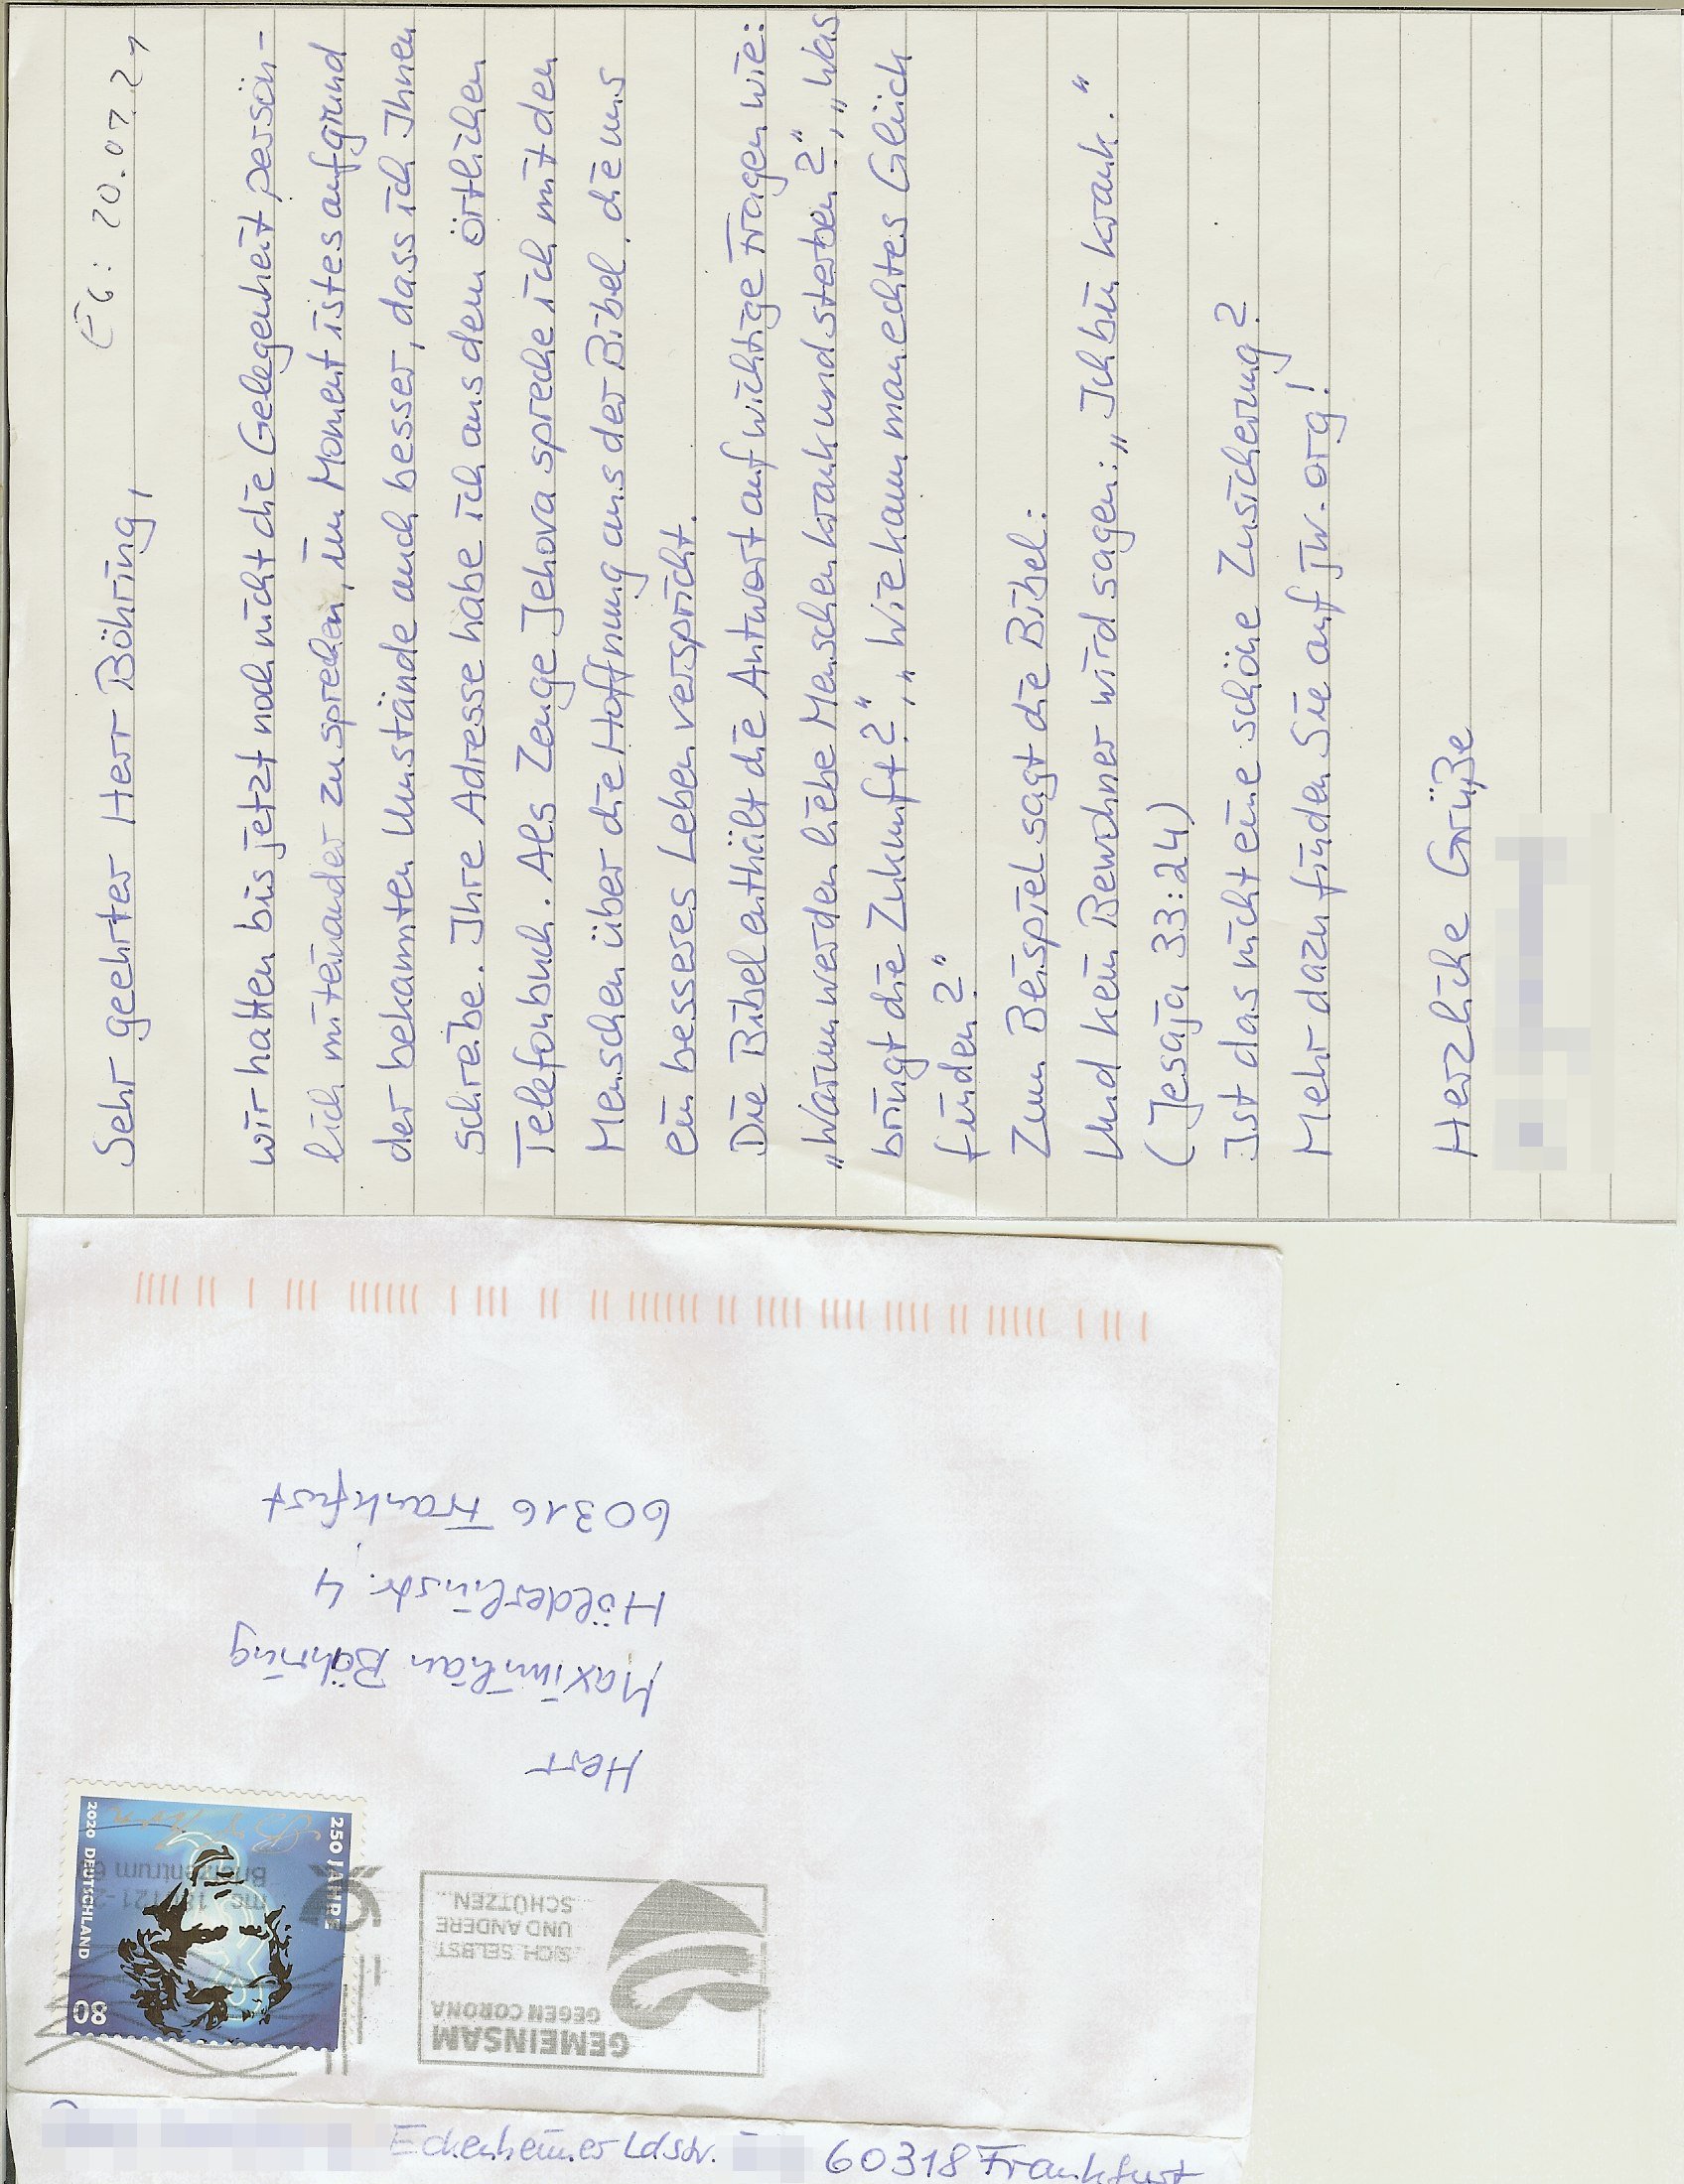 EG: 20.07.21
Sehr geehrter Herr Böhring,
wir hatten bis jetzt noch nicht die Gelegenheit persön-
lich miteinander zu sprechen, im Moment ist es aufgrund
der bekannten Umstände auch besser, dass ich Ihnen
schreibe. Ihre Adresse habe ich aus dem örtlichen
Telefonbuch. Als Zeuge Jehova spreche ich mit den
Menschen über die Hoffnung aus der Bibel, die uns
ein besseres Leben verspricht.
Die Bibel enthält die Antwort auf wichtige Fragen wie:
„Warum werden liebe Menschen krank und sterben?“, „Was
bringt die Zukunft?“, „Wie kann man echtes Glück
finden?“
Zum Beispiel sagt die Bibel:
Und kein Bewohner wird sagen: „Ich bin krank.“
(Jesaja 33:24)
Ist das nicht eine schöne Zusicherung?
Mehr dazu finden Sie auf jw.org!
Herzliche Grüße
Herr
Maximilian Böhring
Hölderlinstr. 4
60316 Frankfurt
250 JAHRE
2020 DEUTSCHLAND
80
Briefzentrum
GEMEINSAM
GEGEN CORONA
SICH SELBST
UND ANDERE
SCHÜTZEN...
Eckenheimer Ldstr.
60318 Frankfurt